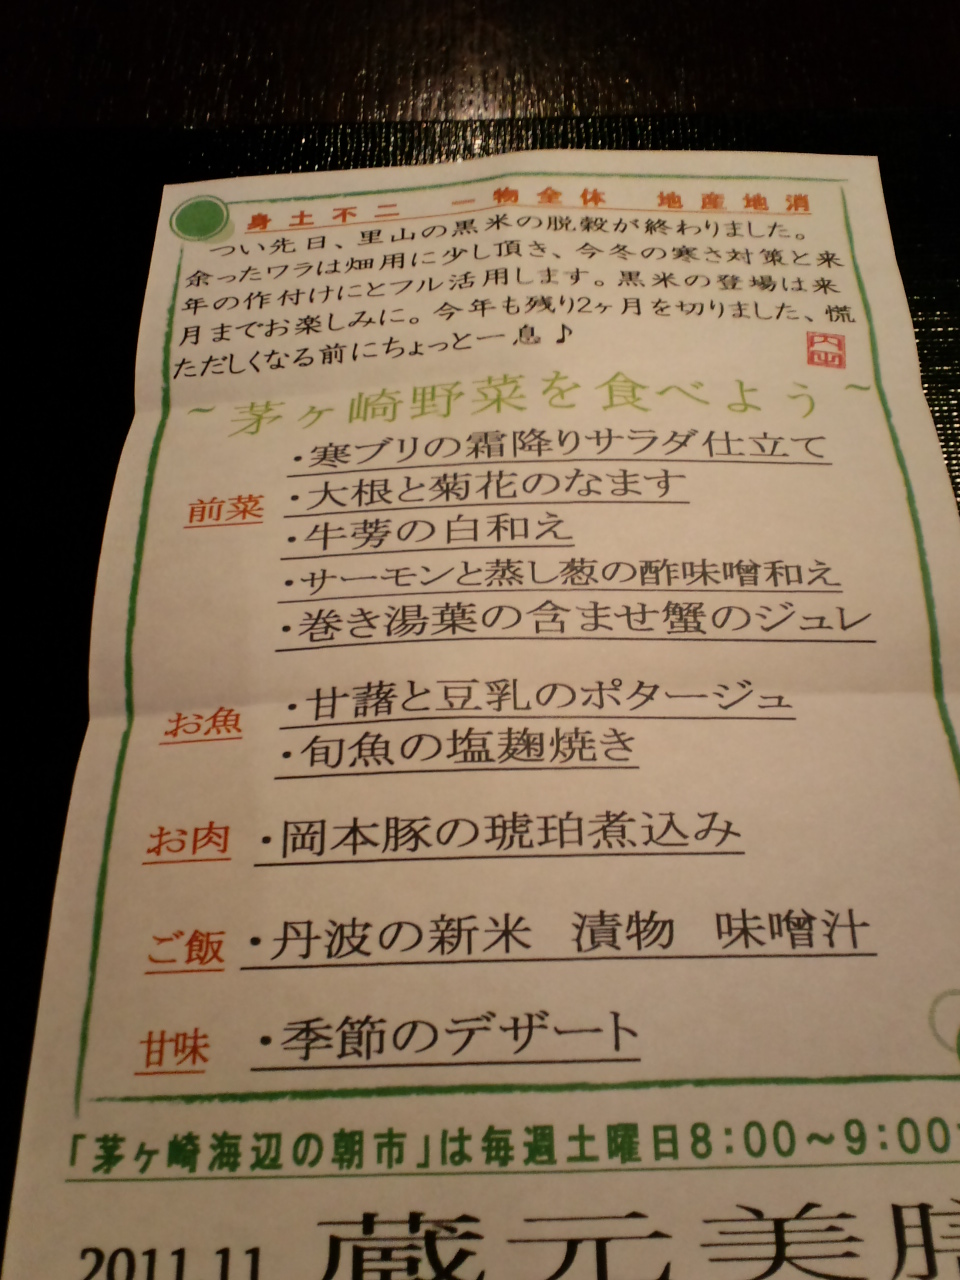 身土不二 一物全体 地産地消
つい先日、里山の黒米の脱穀が終わりました。
余ったワラは畑用に少し頂き、今冬の寒さ対策と来
年の作付けにとフル活用します。黒米の登場は来
月までお楽しみに。今年も残り2ヶ月を切りました、慌
ただしくなる前にちょっと一息♪
~茅ヶ崎野菜を食べよう~
前菜
・寒ブリの霜降りサラダ仕立て
・大根と菊花のなます
・牛蒡の白和え
・サーモンと蒸し葱の酢味噌和え
・巻き湯葉の含ませ蟹のジュレ
お魚
・甘藷と豆乳のポタージュ
・旬魚の塩麹焼き
お肉
・岡本豚の琥珀煮込み
ご飯
・丹波の新米 漬物 味噌汁
甘味
・季節のデザート
「茅ヶ崎海辺の朝市」は毎週土曜日8:00～9:00
2011.11 蔵元美